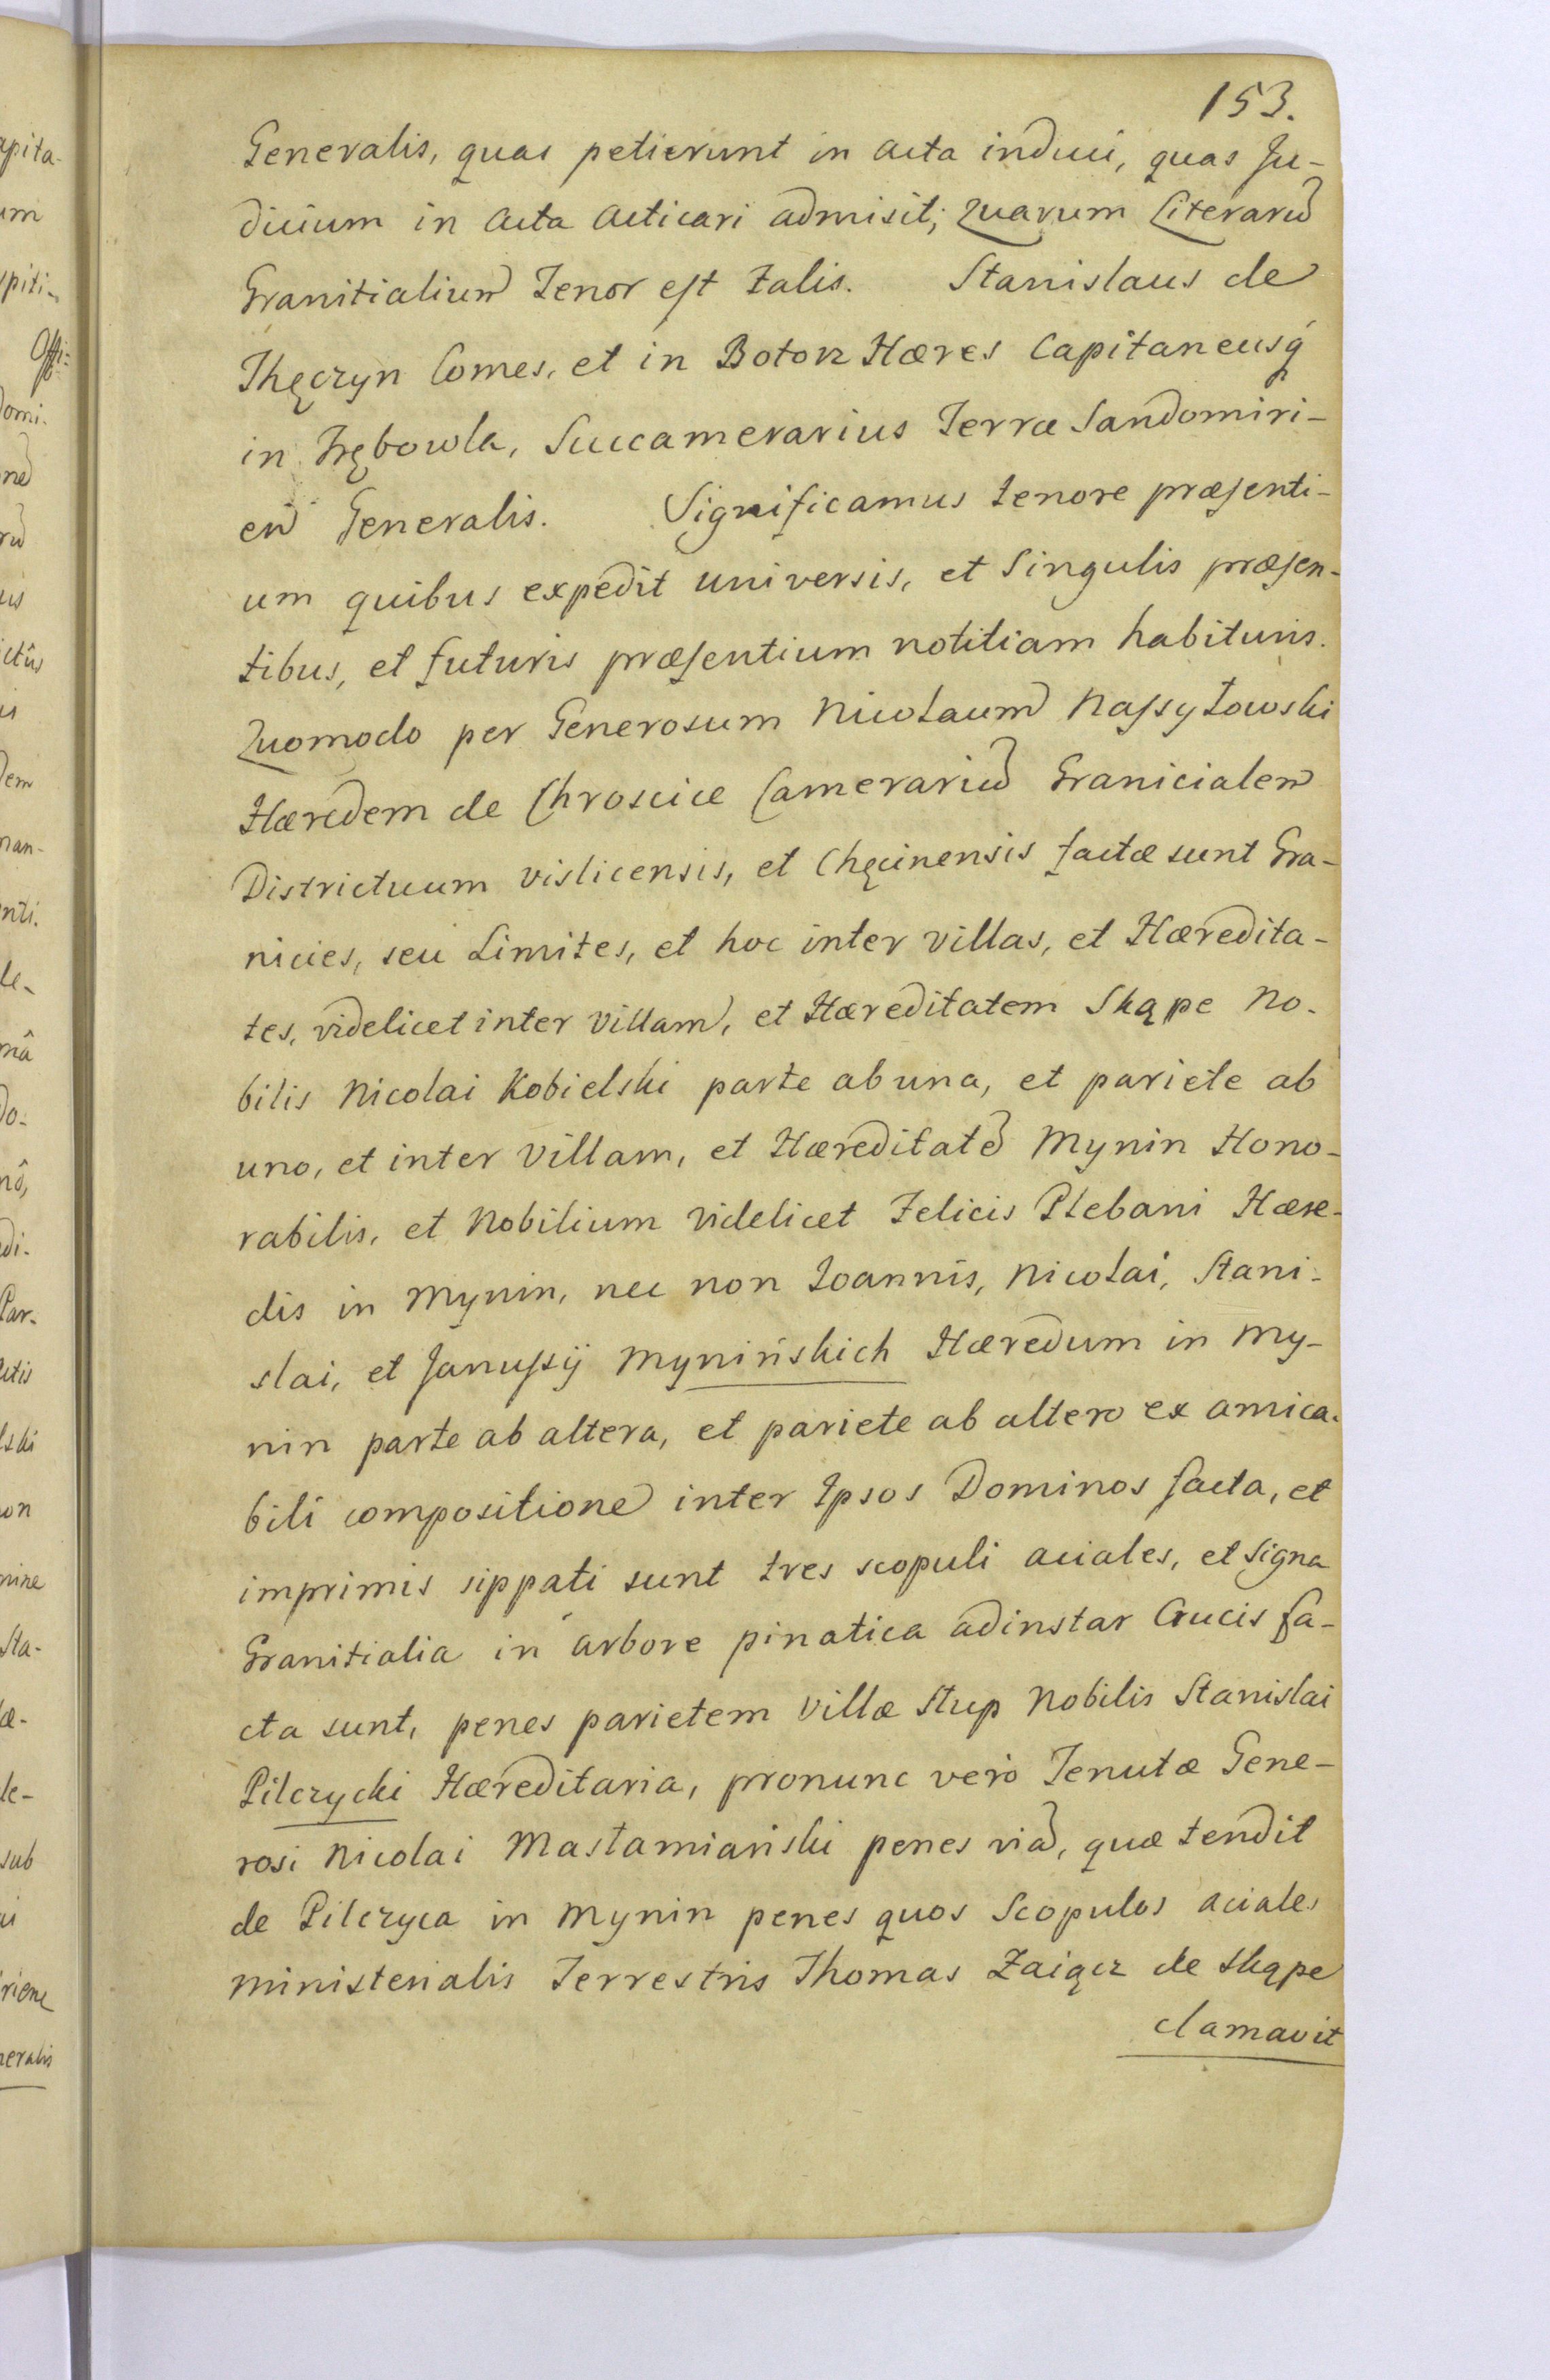 153.
Generalis, quas petierunt in acta induci, quas Ju-
dicium in acta acticari admisit; Quarum Literarũ
Granitialium Tenor est talis. Stanislaus de
Thęczyn Comes, et in Botorz Hæres Capitaneusq́
in Trębowla, Succamerarius Terræ Sandomiri-
eñ Generalis. Significamus tenore præsenti-
um quibus expedit universis, et Singulis præsen-
tibus, et futuris præsentium notitiam habituris.
Quomodo per Generosum Nicolaum Nassyłowski
Hæredem de Chroscice Camerariũ Granicialem
Districtuum vislicensis, et Chęcinensis factæ sunt Gra-
nicies, seu Limites, et hoc inter villas, et Hæredita-
tes, videlicet inter villam, et Hæreditatem Skąpe No-
bilis Nicolai Kobielski parte ab una, et pariete ab
uno, et inter villam, et Hæreditatẽ Mynin Hono-
rabilis, et Nobilium videlicet Felicis Plebani Hære-
dis in Mynin, nec non Joannis, Nicolai, Stani-
slai, et Janussij Mynińskich Hæredum in My-
nin parte ab altera, et pariete ab altero ex amica-
bili compositione inter Ipsos Dominos facta, et
imprimis sippati sunt tres scopuli aciales, et signa
Granitialia in arbore pinatica adinstar Crucis fa-
cta sunt, penes parietem Villæ Słup Nobilis Stanislai
Pilczycki Hæreditaria, pronunc verò Tenutæ Gene-
rosi Nicolai Masłamiański penes viã, quæ tendit
de Pilczyca in Mynin penes quos Scopulos aciales
ministerialis Terrestris Thomas Zaiącz de Skąpe
clamavit
apita-
um
Offi:
omi-
ctûs
dem
nan-
nti.
le-
mâ
do-
nô,
di-
Par-
ctis
lski
non
mine
Sta-
æ-
le-
sub
neralis